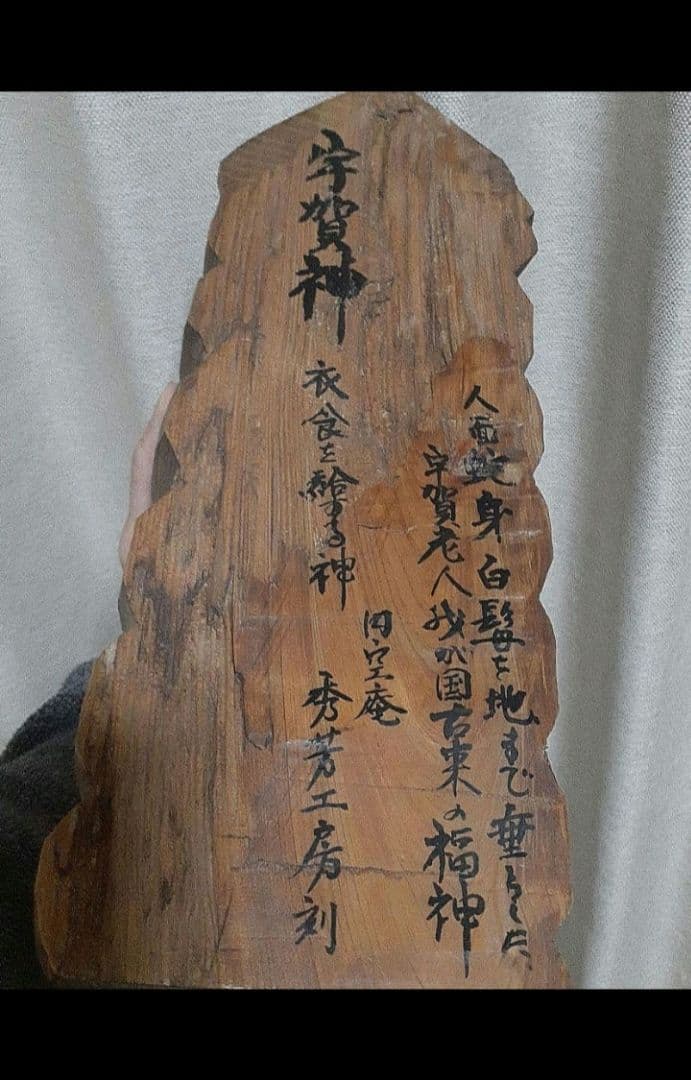 宇賀神
衣食を給する神
人面蛇身白髪を地まで垂らした
宇賀老人我が国古来の福神
円空庵
秀芳工房刻